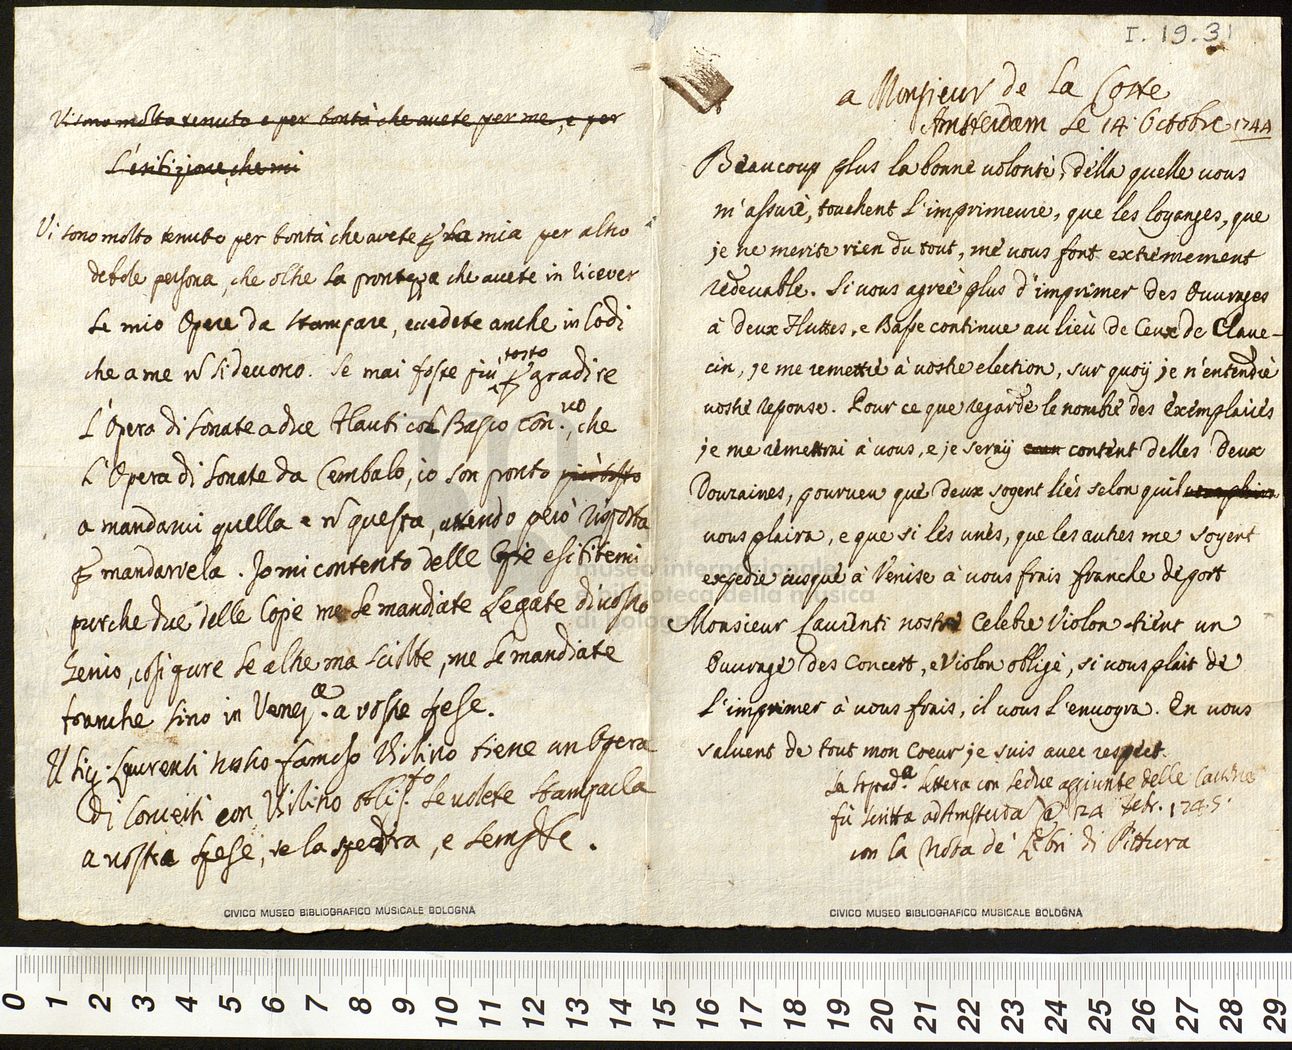 Vi sono molto tenuto e per bontà che avete per me, e per
L'esibizione, che mi
Vi sono molto tenuto per bontà che avete la mia per altro
debole persona, che oltre la prontezza che avete in ricever
Le mio Opere da stampare, eccedete anche in Lodi
che a me non si devono. Se mai foste più tosto p gradire
L'Opera di Sonate a due Flauti col Basso con.uo, che
L'Opera di Sonate da Cembalo, io son pronto più tosto
a mandarvi quella e non questa, attendo però risposta
p mandarvela. Io mi contento delle Copie esibitemi
purche due delle Copie me Le mandiate Legate di vostro
Genio, così pure Le altre ma sciolte, me Le mandiate
franche sino in Venez.a a vostre spese.
Il Sig. Laurenti nostro famoso Violino tiene un Opera
di Concerti con Violino obli.to Se volete stamparla
a vostre spese, ve la spedirà, e Lemstre.
I. 19.31
a Monsieur de La Coste
Amsterdam Le 14 Octobre 1744
Beaucoup plus la bonne volonté, della quelle vous
m'assuré, touchent L'imprimeure, que les loyanges, que
je ne merite rien du tout, me vous font extremement
redevable. Si vous agreé plus d'imprimer des Ouvrages
à deux Fluttes, e Basse continue au lieù de Ceux de Clave-
cin, je me remettré à vostre election, sur quoÿ je n'entendré
vostre reponse. Pour ce que regarde le nombre des exemplaires
je me remettrai à vous, e je seraÿ content delles deux
Douzaines, pourveu que deux soyent liés selon quil
vous plaira, e que si les unes, que les autres me soyent
expedie jusque à Venise à vous frais franche de port
Monsieur Laurenti nostre Celebre Violon tient un
Ouvrage des Concert, e Violon obligé, si vous plait de
L'imprimer à vous frais, il vous L'envoyra. En vous
saluent de tout mon Coeur je suis avec respect.
La soprad.a Lettera con Le due aggiunte delle
fù scritta ad Amsterda 24 Febr. 1745.
con la Nota de' Libri di Pittura
museo internazionale
e biblioteca della musica
di bologna
CIVICO MUSEO BIBLIOGRAFICO MUSICALE BOLOGNA
CIVICO MUSEO BIBLIOGRAFICO MUSICALE BOLOGNA
0 1 2 3 4 5 6 7 8 9 10 11 12 13 14 15 16 17 18 19 20 21 22 23 24 25 26 27 28 29